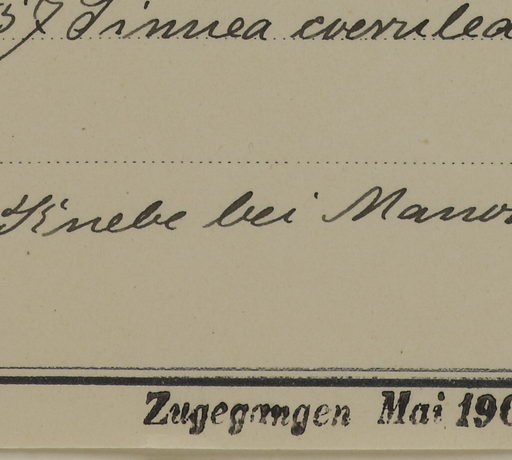 57 Tinnea coerulea
Knebe bei Manow
Zugegangen Mai 190